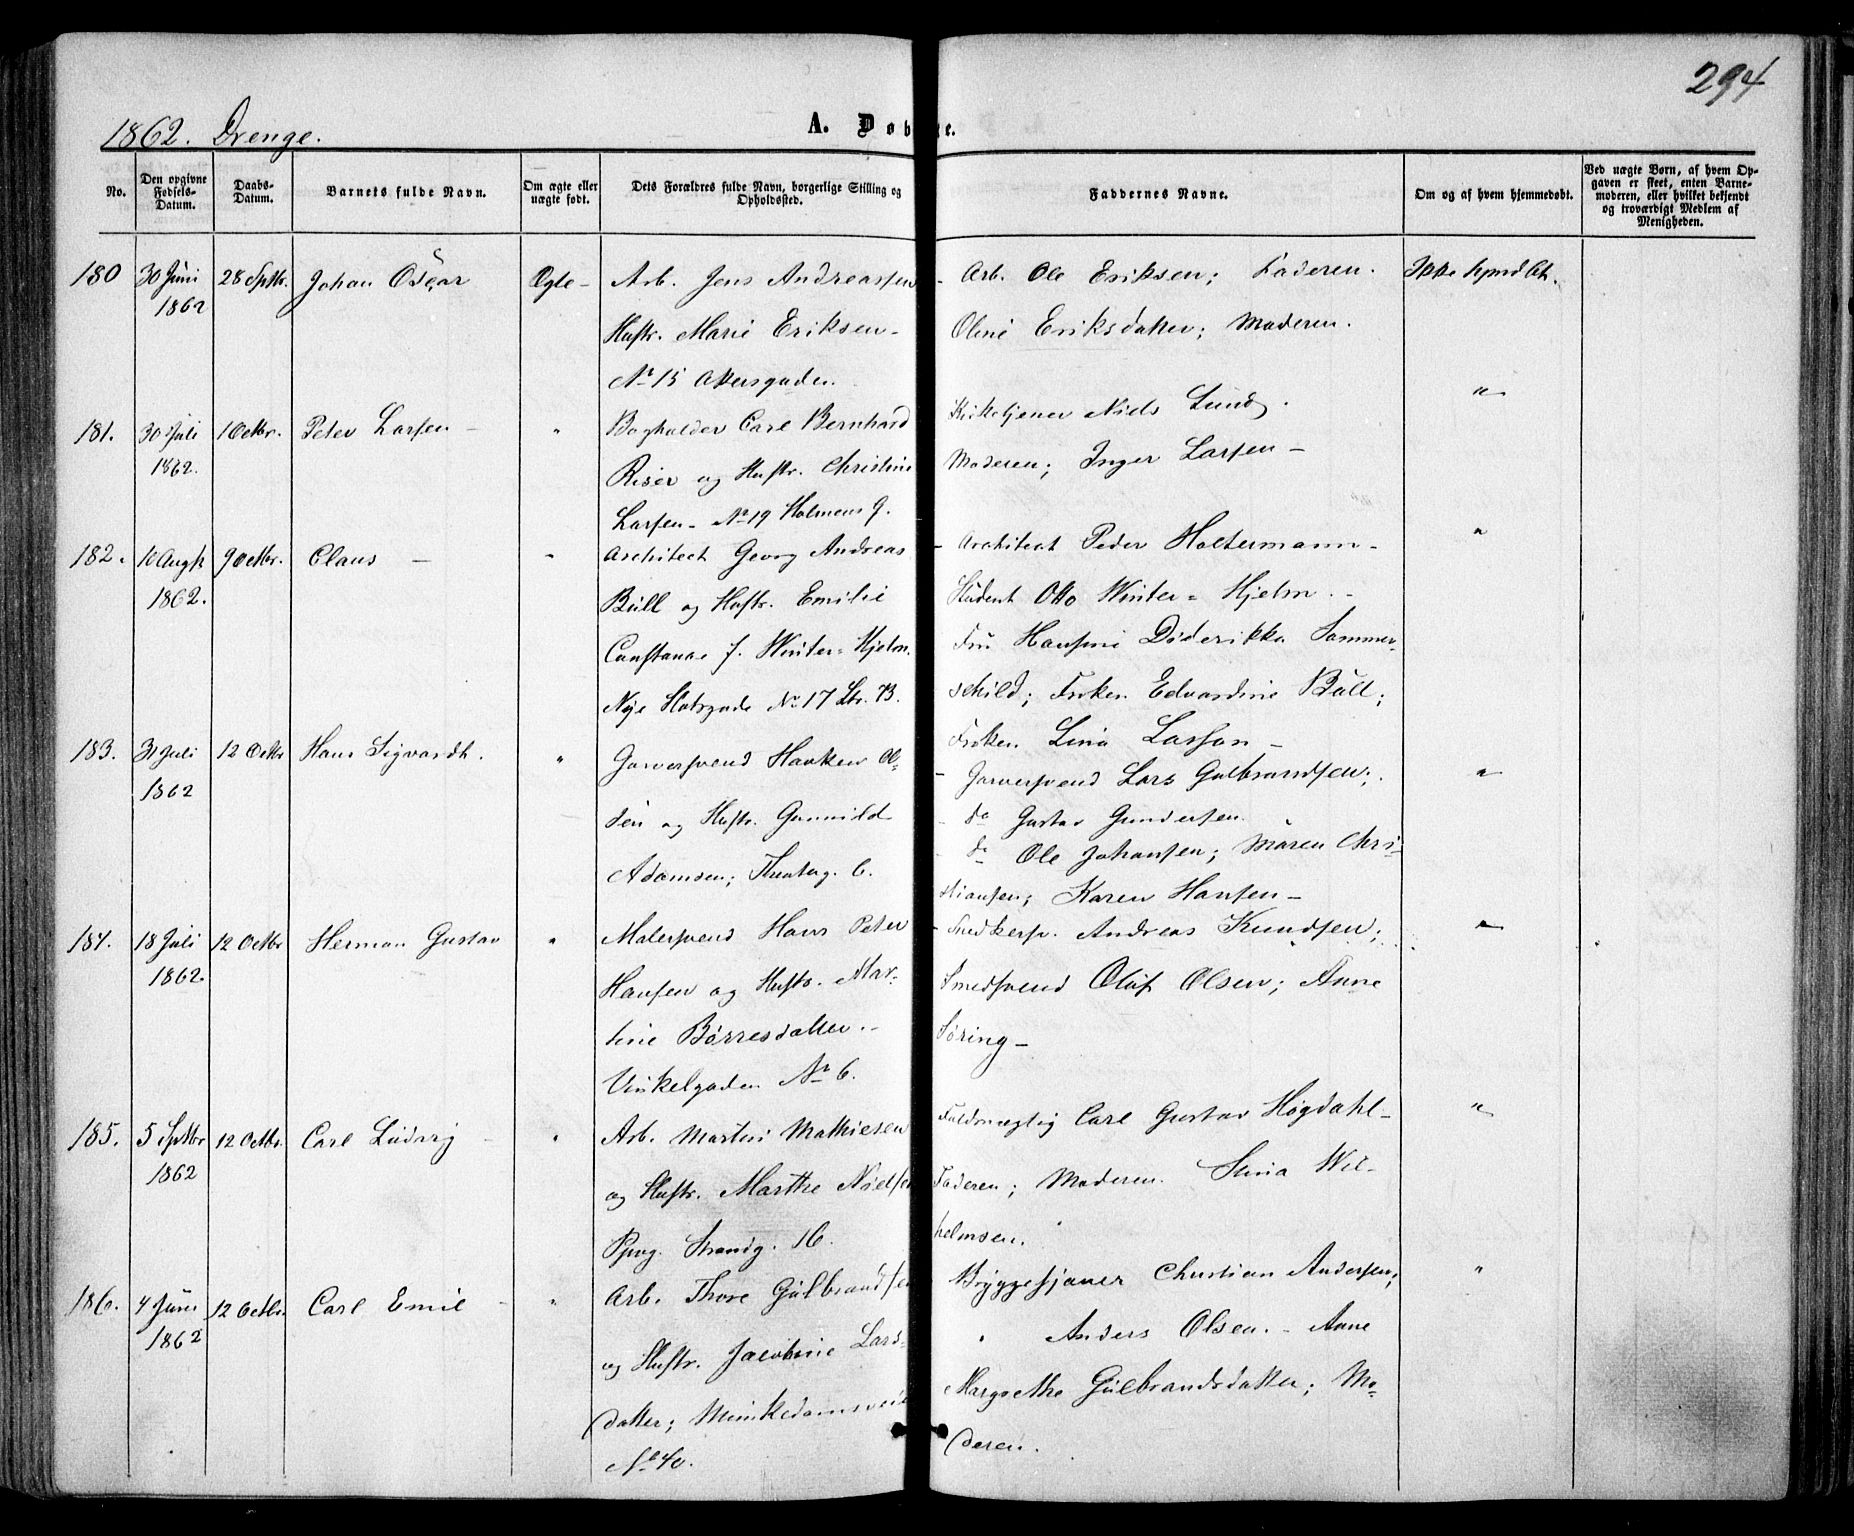 294
1862. Drenge.
A. Døbte.
No.
Den opgivne Fødsels-Datum.
Daabs-Datum.
Barnets fulde Navn.
Om ægte eller uægte født.
Dets Forældres fulde Navn, borgerlige Stilling og Opholdssted.
Faddernes Navne.
Om og af hvem hjemmedøbt.
Ved uægte Børn, af hvem Op-
gaven er skeet, enten Barne-
moderen, eller hvilket bekjendt
og troværdigt Medlem af
Menigheden.
180 30 Juni 28 Sptbr. Johan Oscar Ægte - Arb. Jens Andreassen - Arb. Ole Eriksen; Faderen. Ikke hjmdbt.
1862 Hustr. Marie Eriksen - Oline Eriksdatter; Moderen.
No 15 Akersgaden.
181. 30 Juli 1 Octbr. Peter Larsen - " Bogholder Carl Bernhard Kirketjener Niels Lund. "
1862. Riser og Hustr. Christine Moderen; Inger Larsen -
Larsen - No 19 Holmens g.
182. 10 Augst 9 Octbr. Claus - " Architect Georg Andreas - Architect Peder Holtermann - "
1862. Büll og Hustr. Emilie Student Otto Winter = Hjelm. -
Constance f. Winter = Hjelm. Fru Hansine Diderikka Sommer-
Nye Slotsgade No 17 Ltr. B. schild; Frøken Edvardine Büll;
Frøken Lina Larson -
183. 31 Juli 12 Octbr Hans Sigvardt. " Garversvend Haaken Ol- - Garversvend Lars Gulbrandsen; "
1862 sen og Hustr. Gunnild - do Gustav Gundersen.
Adamsen; Theaterg. 6. - do Ole Johansen; Maren Chri-
stiansen; Karen Hansen -
184. 18 Juli 12 Octbr Herman Gustav " Malersvend Hans Peter - Snedkersv. Andreas Knudsen; "
1862. Hansen og Hustr. Mar- Smedsvend Oluf Olsen; Anne
tine Børresdatter. - Søring -
Vinkelgaden No 6.
185. 5 Sptbr 12 Octbr. Carl Ludvig - " Arb. Martin Mathiesen Fuldmægtig Carl Gustav Høgdahl - "
1862 og Hustr. Marthe Nielsen Faderen; Moderen. Stina Wil-
Pipvg. Strandg. 16. helmsen.
186. 4 Juni 12 Octbr. Carl Emil - " Arb. Thore Gulbrandsen - Bryggesjauer Christian Andersen; "
1862 og Hustr. Jacobine Lars- " Anders Olsen. - Anne
datter; Munkedamsveien Margrethe Gulbrandsdatter; Mo-
No 40. deren.